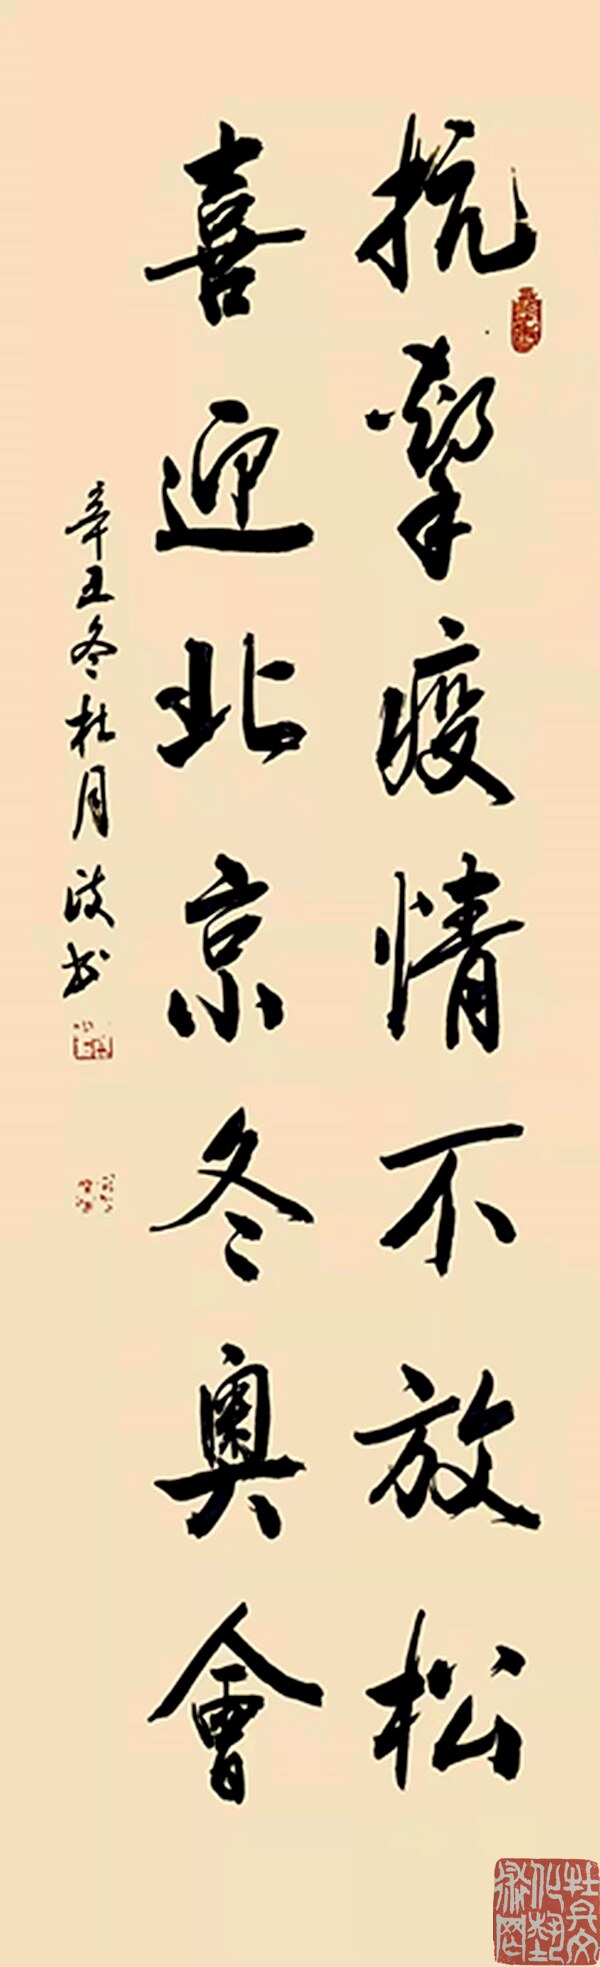 抗擊疫情不放松
喜迎北京冬奧會
辛丑冬杜月波书